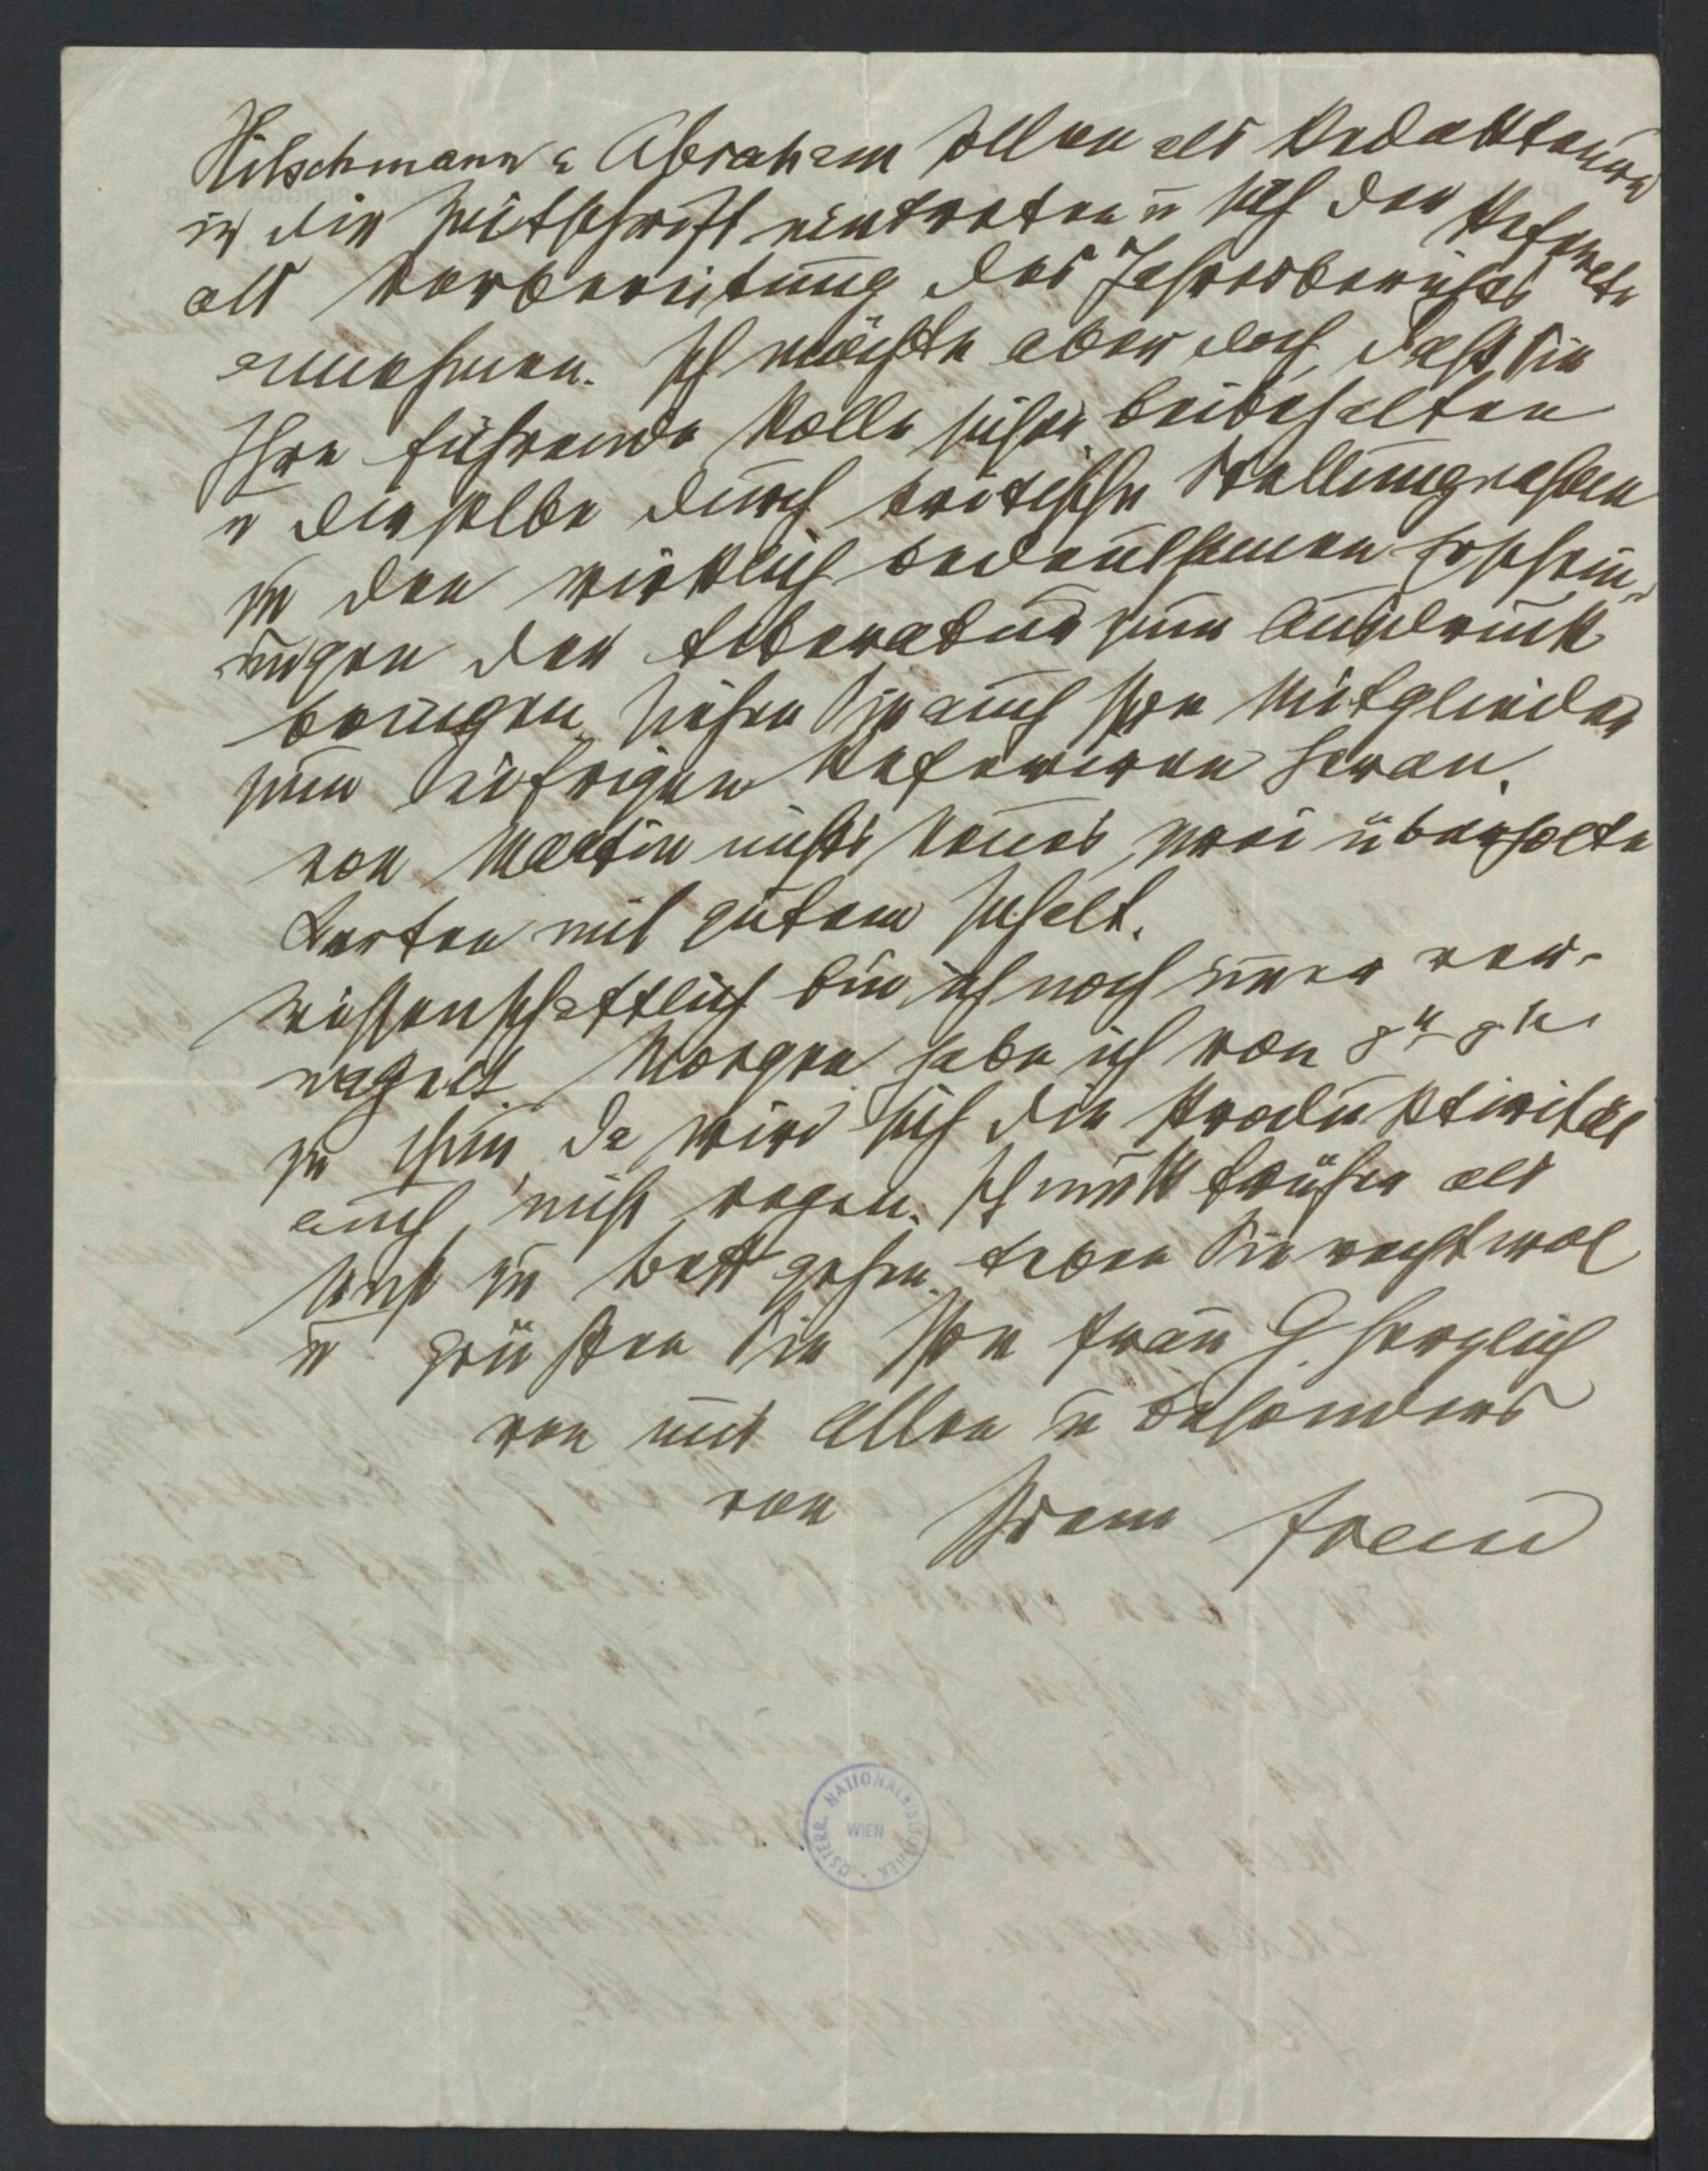 Hitschmann & Abraham sollen als Redakteure
in die Zeitschrift eintreten u sich der Referate
als Vorbereitung des Jahresberichts
annehmen. Ich möchte aber doch, daß Sie
Ihre führende Rolle sicher beibehalten
u dieselbe durch kritische Stellungnahmen
zu den wirklich bedeutsamen Erschein-
ungen der Literatur zum Ausdruck
bringen. Ziehen Sie auch Ihre Mitglieder
zum eifrigen Referieren heran.
Von Martin nichts Neues, zwei überholte
Karten mit gutem Inhalt.
Wissenschaftlich bin ich noch immer ver-
nagelt. Morgen habe ich von 8h–9h
zu thun, da wird sich die Produktivität
auch nicht regen. Ich muß früher als
sonst zu Bett gehen. Leben Sie recht wol
u grüßen Sie Ihre Frau G. herzlich
von uns Allen u besonders
von Ihrem Freud
ÖSTERR. NATIONALBIBLIOTHEK
WIEN